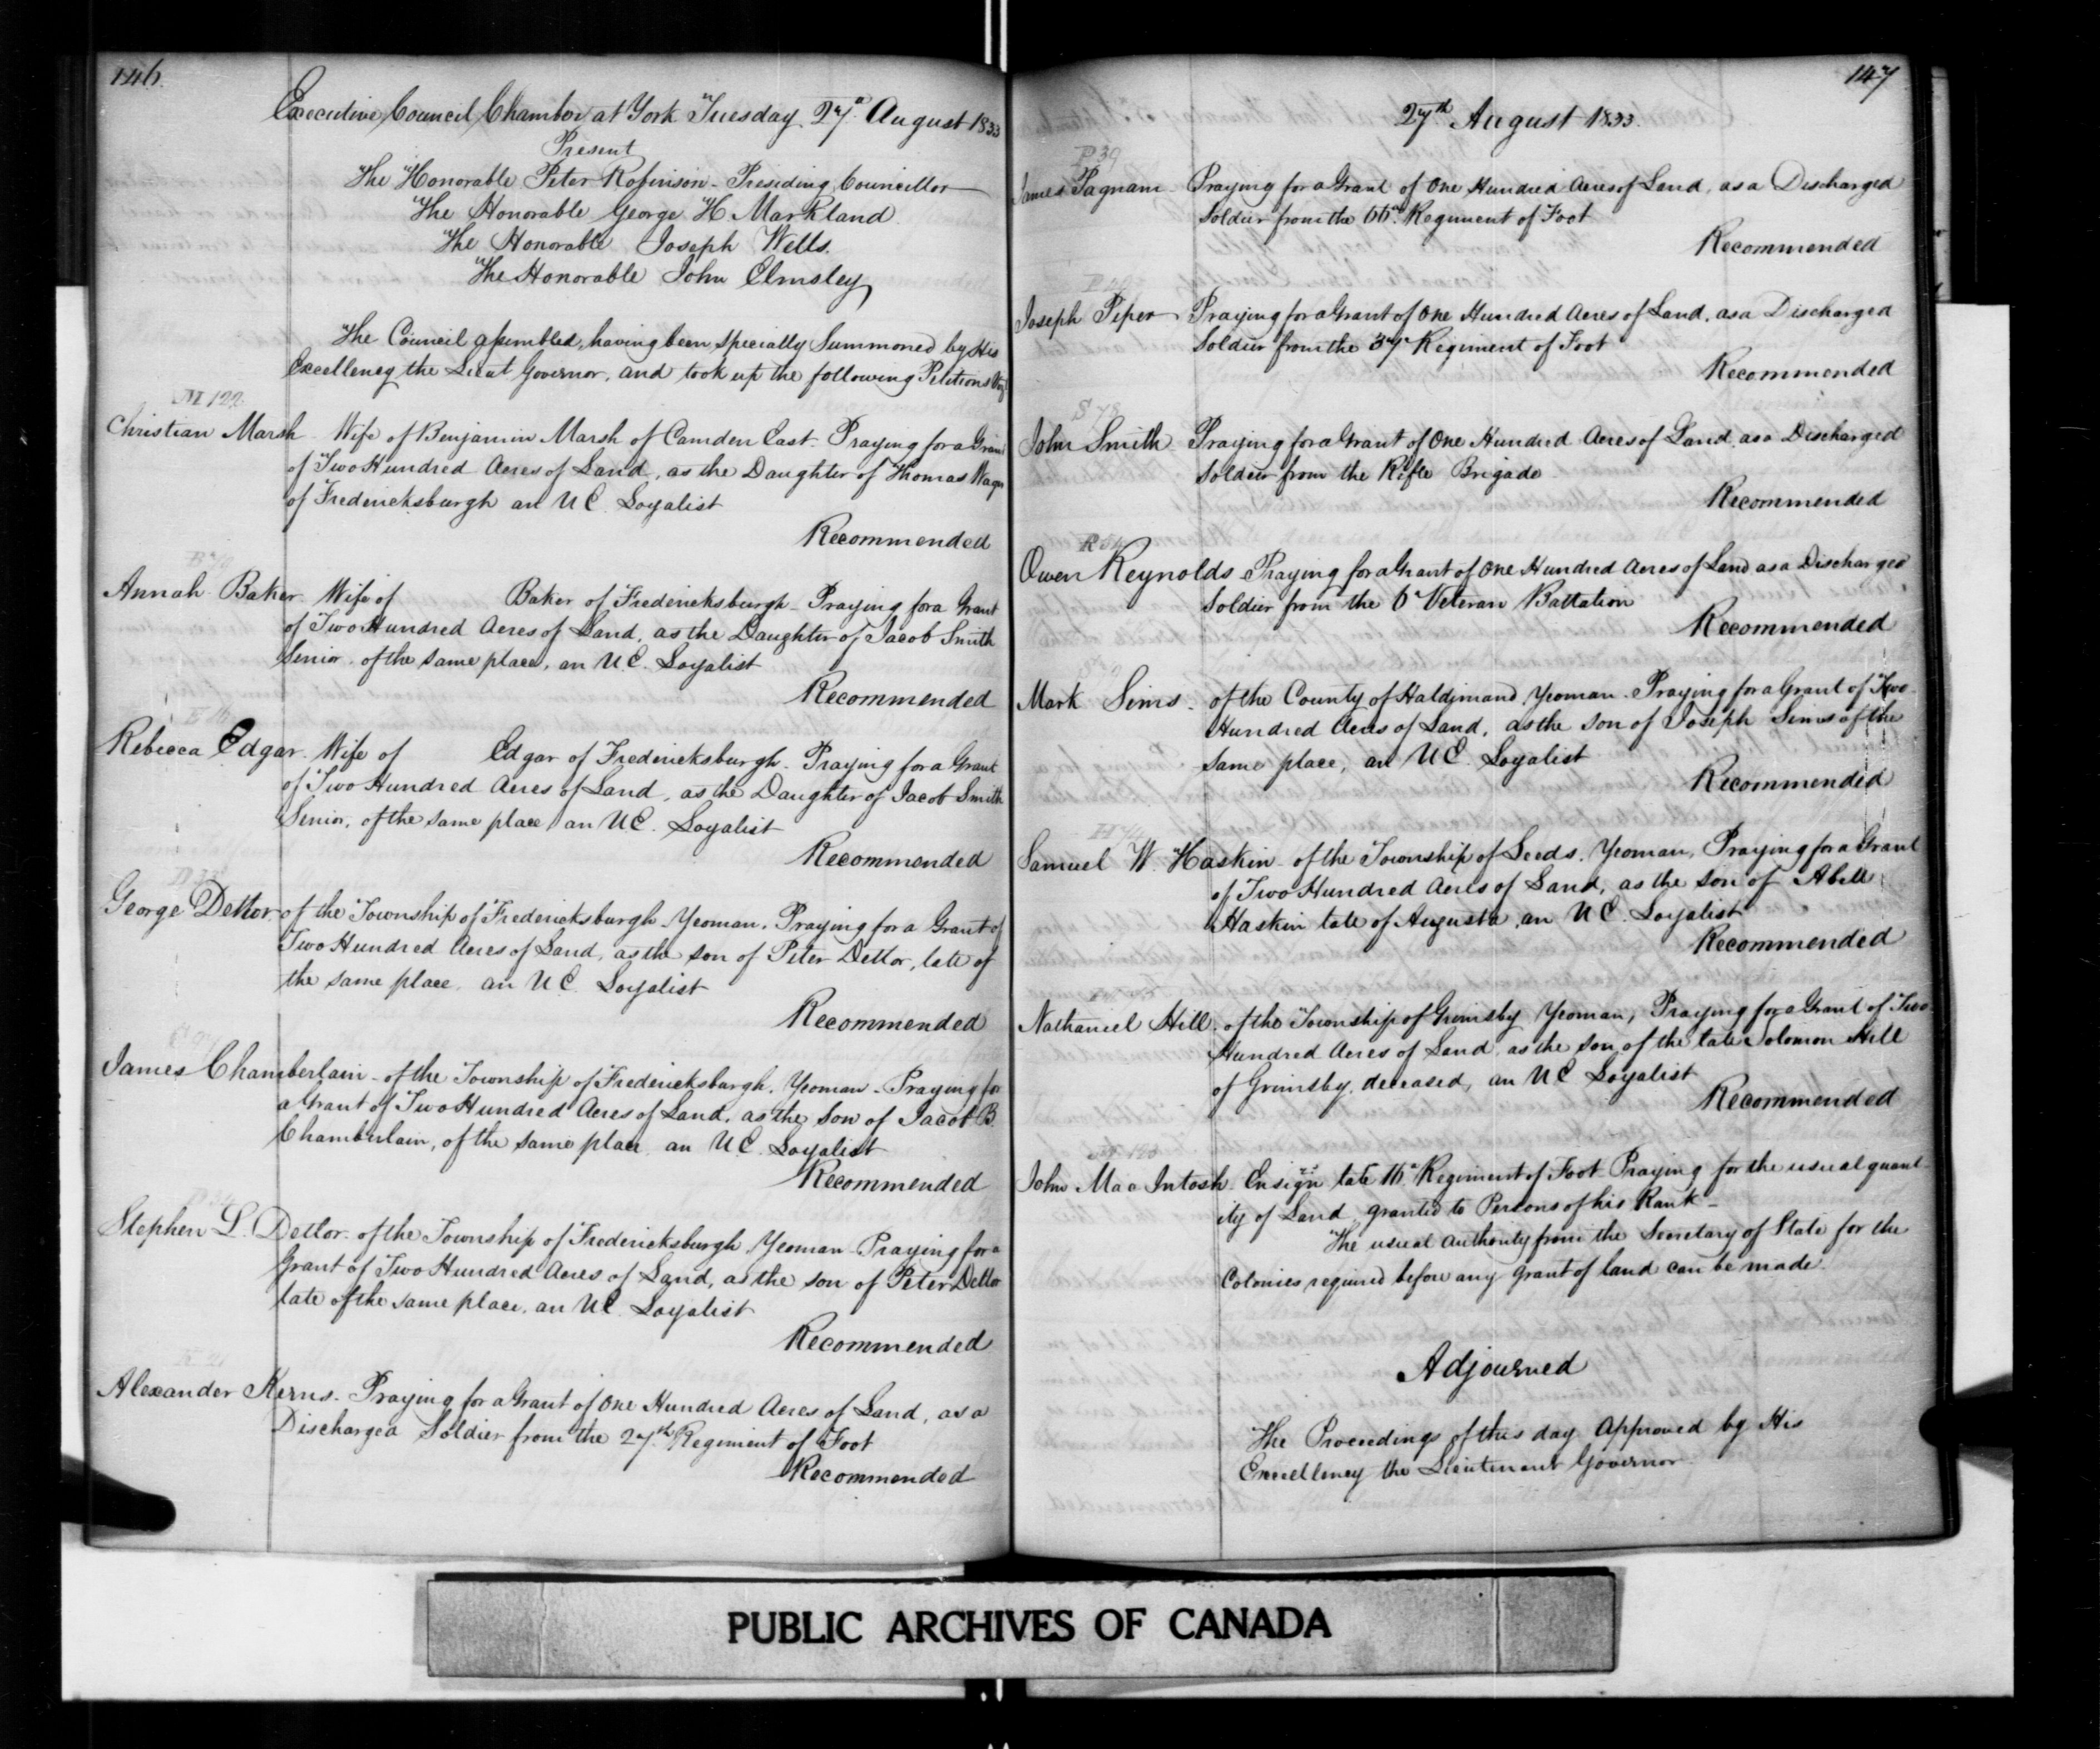 146.
Executive Council Chamber at York Tuesday 27th August 1833
Present
The Honorable Peter Robinson - Presiding Councillor
The Honorable George H Markland
The Honorable Joseph Wells.
The Honorable John Elmsley
The Council assembled, having been specially Summoned by His
Excellency the Lieut Governor, and took up the following Petitions Viz
M 122
Christian Marsh Wife of Benjamin Marsh of Camden East - Praying for a Grant
of Two Hundred Acres of Land, as the Daughter of Thomas
of Fredericksburgh an U.E. Loyalist
Recommended
Annah Baker Wife of Baker of Fredericksburgh - Praying for a Grant
of Two Hundred Acres of Land, as the Daughter of Jacob Smith
Senior, of the same place, an U.E. Loyalist
Recommended
Rebecca Edgar. Wife of Edgar of Fredericksburgh - Praying for a Grant
of Two Hundred Acres of Land, as the Daughter of Jacob Smith
Senior, of the same place, an U.E. Loyalist
Recommended
George Detlor of the Township of Fredericksburgh Yeoman. Praying for a Grant of
Two Hundred Acres of Land, as the son of Peter Detlor, late of
the same place, an U.E. Loyalist
Recommended
James Chamberlain - of the Township of Fredericksburgh. Yeoman - Praying for
a Grant of Two Hundred Acres of Land, as the Son of Jacob B.
Chamberlain, of the same place an U.E. Loyalist
Recommended
Stephen L. Detlor - of the Township of Fredericksburgh Yeoman - Praying for a
Grant of Two Hundred Acres of Land, as the son of Peter Detlor
late of the same place, an U.E. Loyalist
Recommended
Alexander Kerns - Praying for a Grant of One Hundred Acres of Land, as a
Discharged Soldier from the 27th Regiment of Foot
Recommended
147
27th August 1833.
P 39
James Pagnam - Praying for a Grant of One Hundred Acres of Land, as a Discharged
Soldier from the 66th Regiment of Foot
Recommended
Joseph Piper - Praying for a Grant of One Hundred Acres of Land, as a Discharged
Soldier from the 37th Regiment of Foot
Recommended
S 78
John Smith Praying for a Grant of One Hundred Acres of Land, as a Discharged
Soldier from the Rifle Brigade
Recommended
R 54
Owen Reynolds Praying for a Grant of One Hundred Acres of Land as a Discharged
Soldier from the 6th Veteran Battalion
Recommended
Mark Sims - of the County of Haldimand Yeoman - Praying for a Grant of Two
Hundred Acres of Land, as the son of Joseph Sims of the
same place, an U.E. Loyalist
Recommended
Samuel W. Haskin - of the Township of Leeds. Yeoman, Praying for a Grant
of Two Hundred Acres of Land, as the son of Abell
Haskin late of Augusta, an U.E. Loyalist
Recommended
Nathaniel Hill. of the Township of Grimsby Yeoman, Praying for a Grant of Two
Hundred Acres of Land, as the son of the late Solomon Hill
of Grimsby, deceased, an U.E. Loyalist
Recommended
John MacIntosh - Ensign late 16th Regiment of Foot Praying for the usual quant-
ity of Land, granted to Persons of his Rank -
The usual authority from the Secretary of State for the
Colonies required before any grant of land can be made.
Adjourned
The Proceedings of this day Approved by His
Excellency the Lieutenant Governor
PUBLIC ARCHIVES OF CANADA